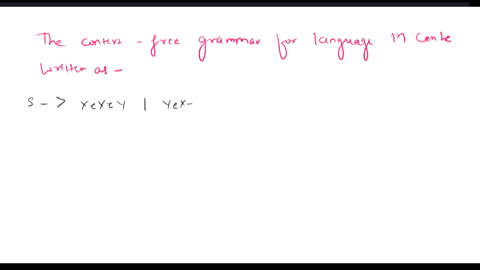 The context - free grammar for language M can be
written as -
S -> XeXeY | YeX-